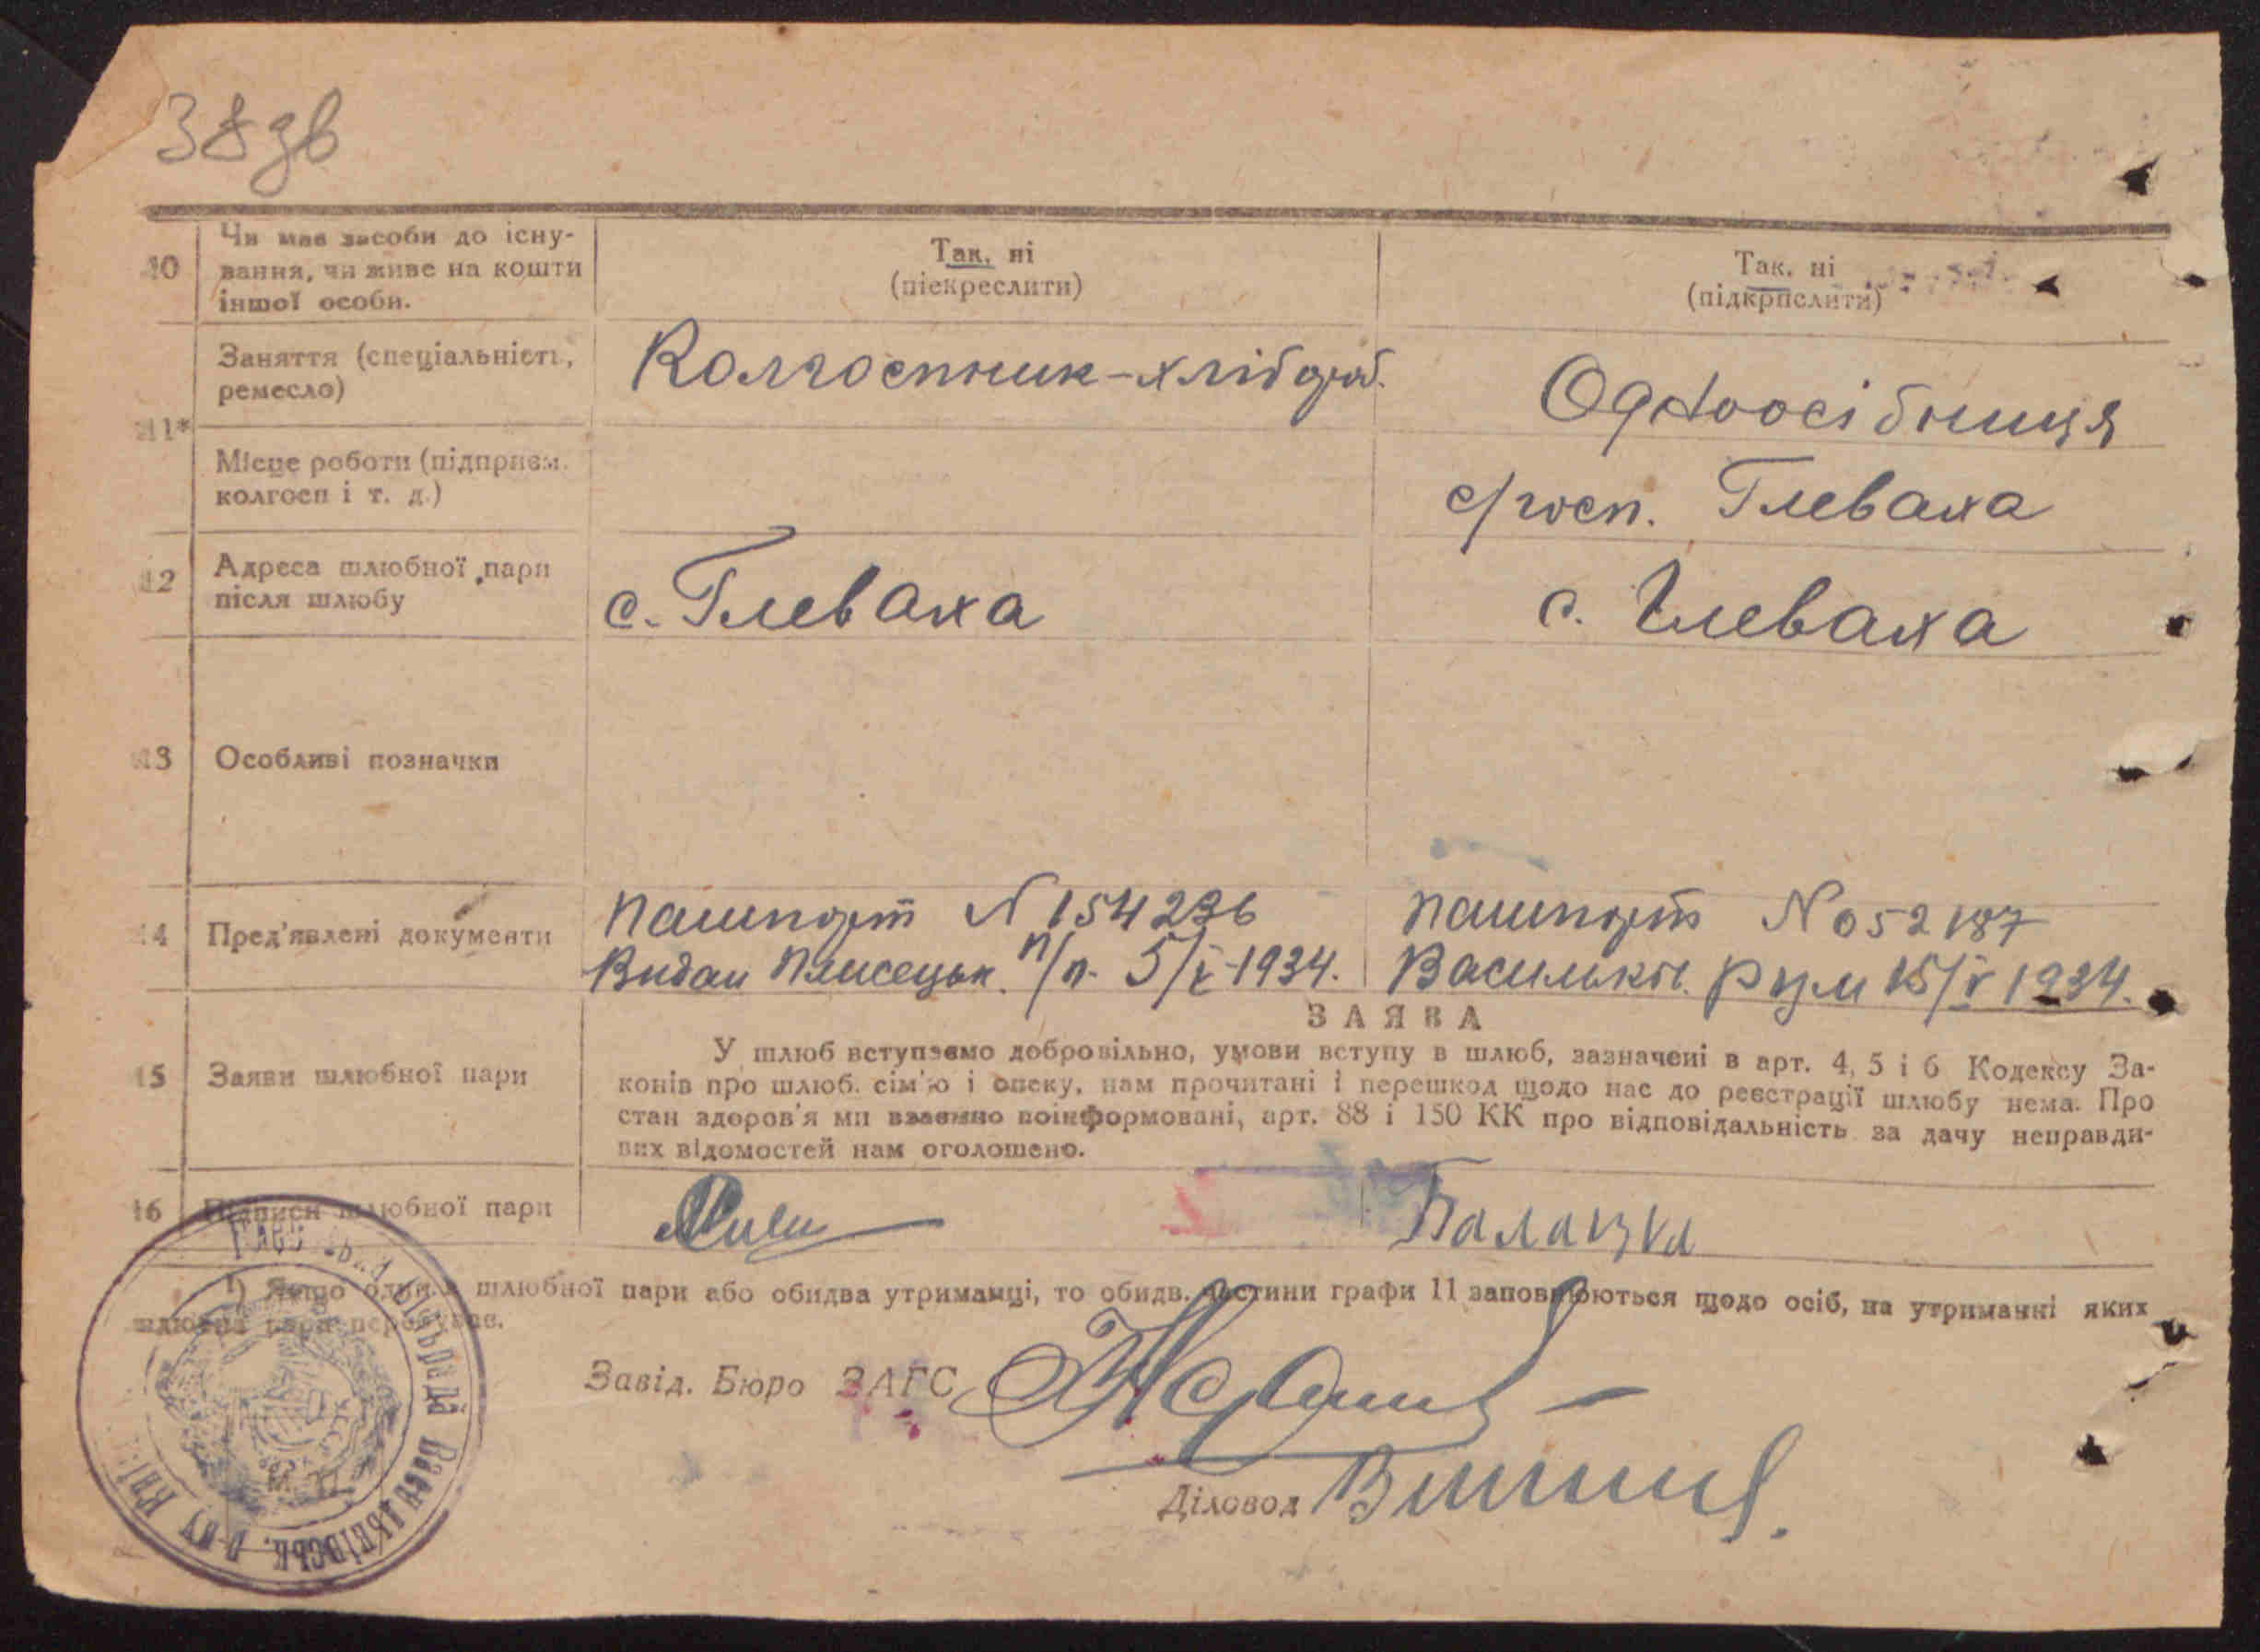 38 зв
10 Чи має засоби до існу-
вання, чи живе на кошти
іншої особи.
Так, ні
(піекреслити)
Так, ні
(підкрпслити)
11*
Заняття (спеціальність,
ремесло)
Колгоспник-хлібороб.
Одноосібниця
Місце роботи (підприєм.
колгосп і т. д.)
с/госп. Глеваха
12 Адреса шлюбної пари
після шлюбу
с. Глеваха
с. Глеваха
13 Особливі позначки
14 Пред'явлені документи
пашпорт N 154236
Видан Плисецьк. п/п. 5/X-1934.
пашпорт N 052187
Васильків. РУМ 15/V 1934.
ЗАЯВА
15 Заяви шлюбної пари
У шлюб вступаємо добровільно, умови вступу в шлюб, зазначені в арт. 4, 5 і 6 Кодексу За-
конів про шлюб. сім'ю і опеку, нам прочитані і перешкод щодо нас до реєстрації шлюбу нема. Про
стан здоров'я ми взаємно поінформовані, арт. 88 і 150 КК про відповідальність за дачу неправди-
вих відомостей нам оголошено.
16 Підписи шлюбної пари
¹) Якщо один з шлюбної пари або обидва утриманці, то обидв. частини графи 11 заповнюються щодо осіб, на утриманні яких
шлюбна пара перебуває.
Завід. Бюро ЗАГС
Діловод
сільради Васильківськ. р-ну